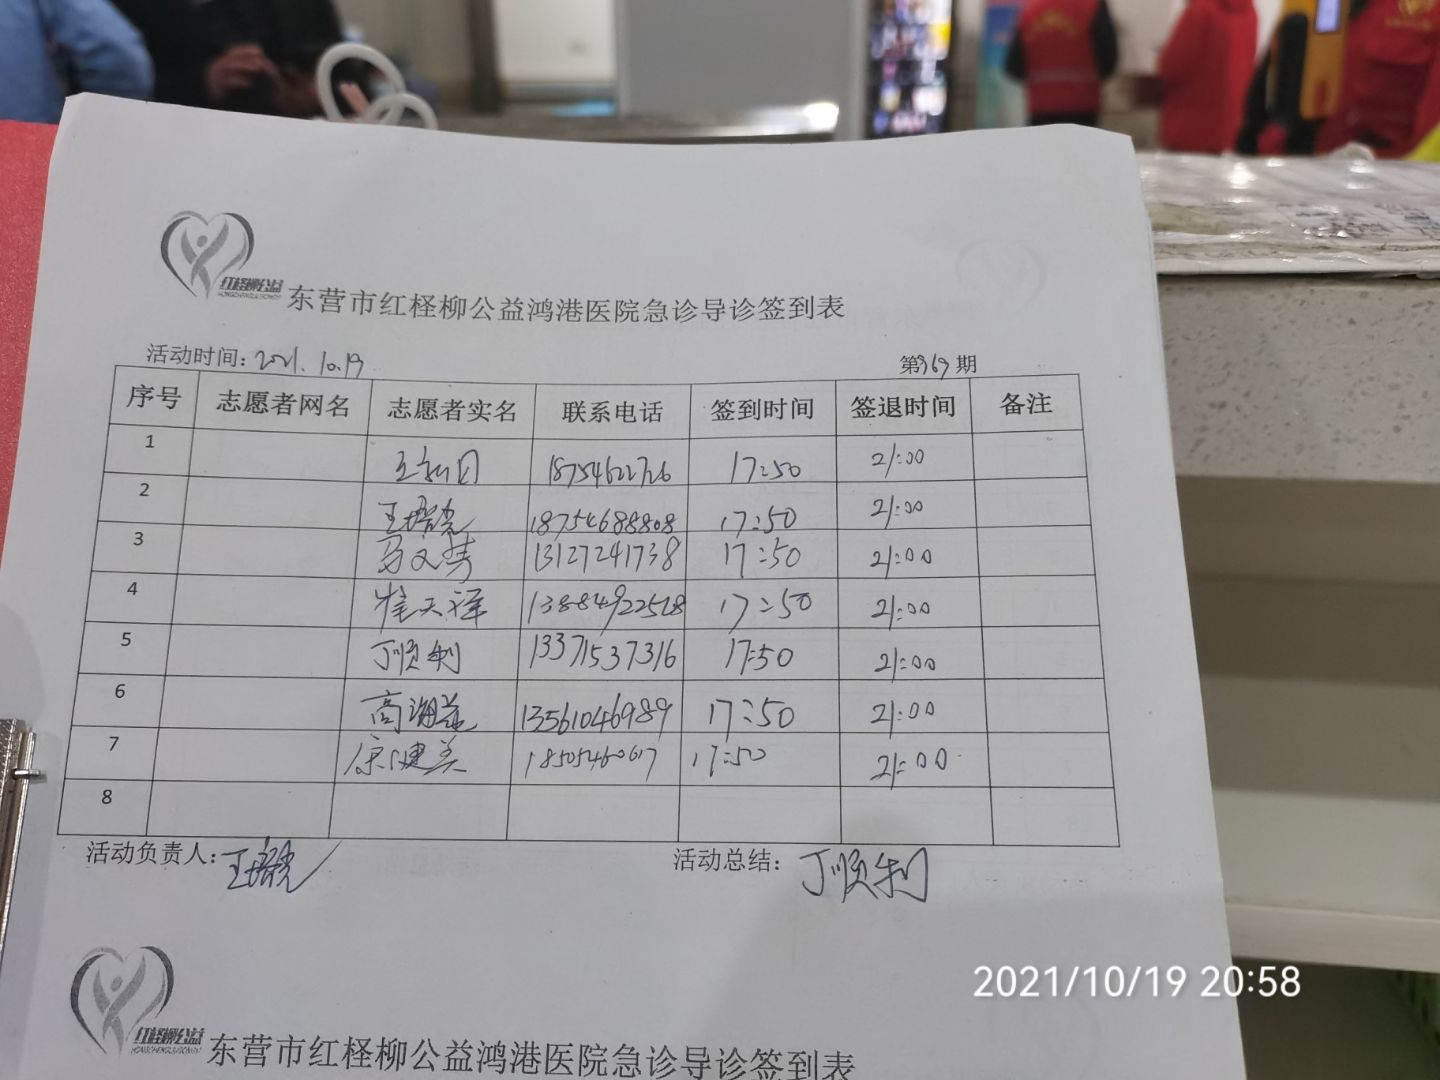 红柽柳公益
东营市红柽柳公益鸿港医院急诊导诊签到表
活动时间：2021.10.19 第369期
序号 志愿者网名 志愿者实名 联系电话 签到时间 签退时间 备注
1 18754622726 17:50 21:00
2 18754688808 17:50 21:00
3 马文芳 13127241738 17:50 21:00
4 崔天祥 13884922518 17:50 21:00
5 丁顺利 13371537316 17:50 21:00
6 高海益 13561046989 17:50 21:00
7 康健美 18505460617 17:50 21:00
8
活动负责人： 活动总结：丁顺利
红柽柳公益
东营市红柽柳公益鸿港医院急诊导诊签到表
2021/10/19 20:58